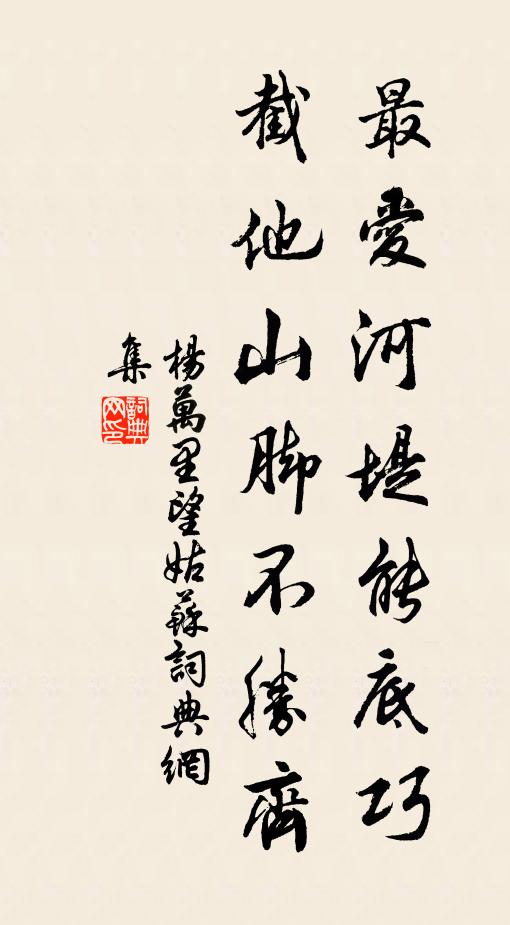 最愛河堤能底巧
截他山脚不勝齊
楊萬里望姑蘇詞典網
集
詞典网印